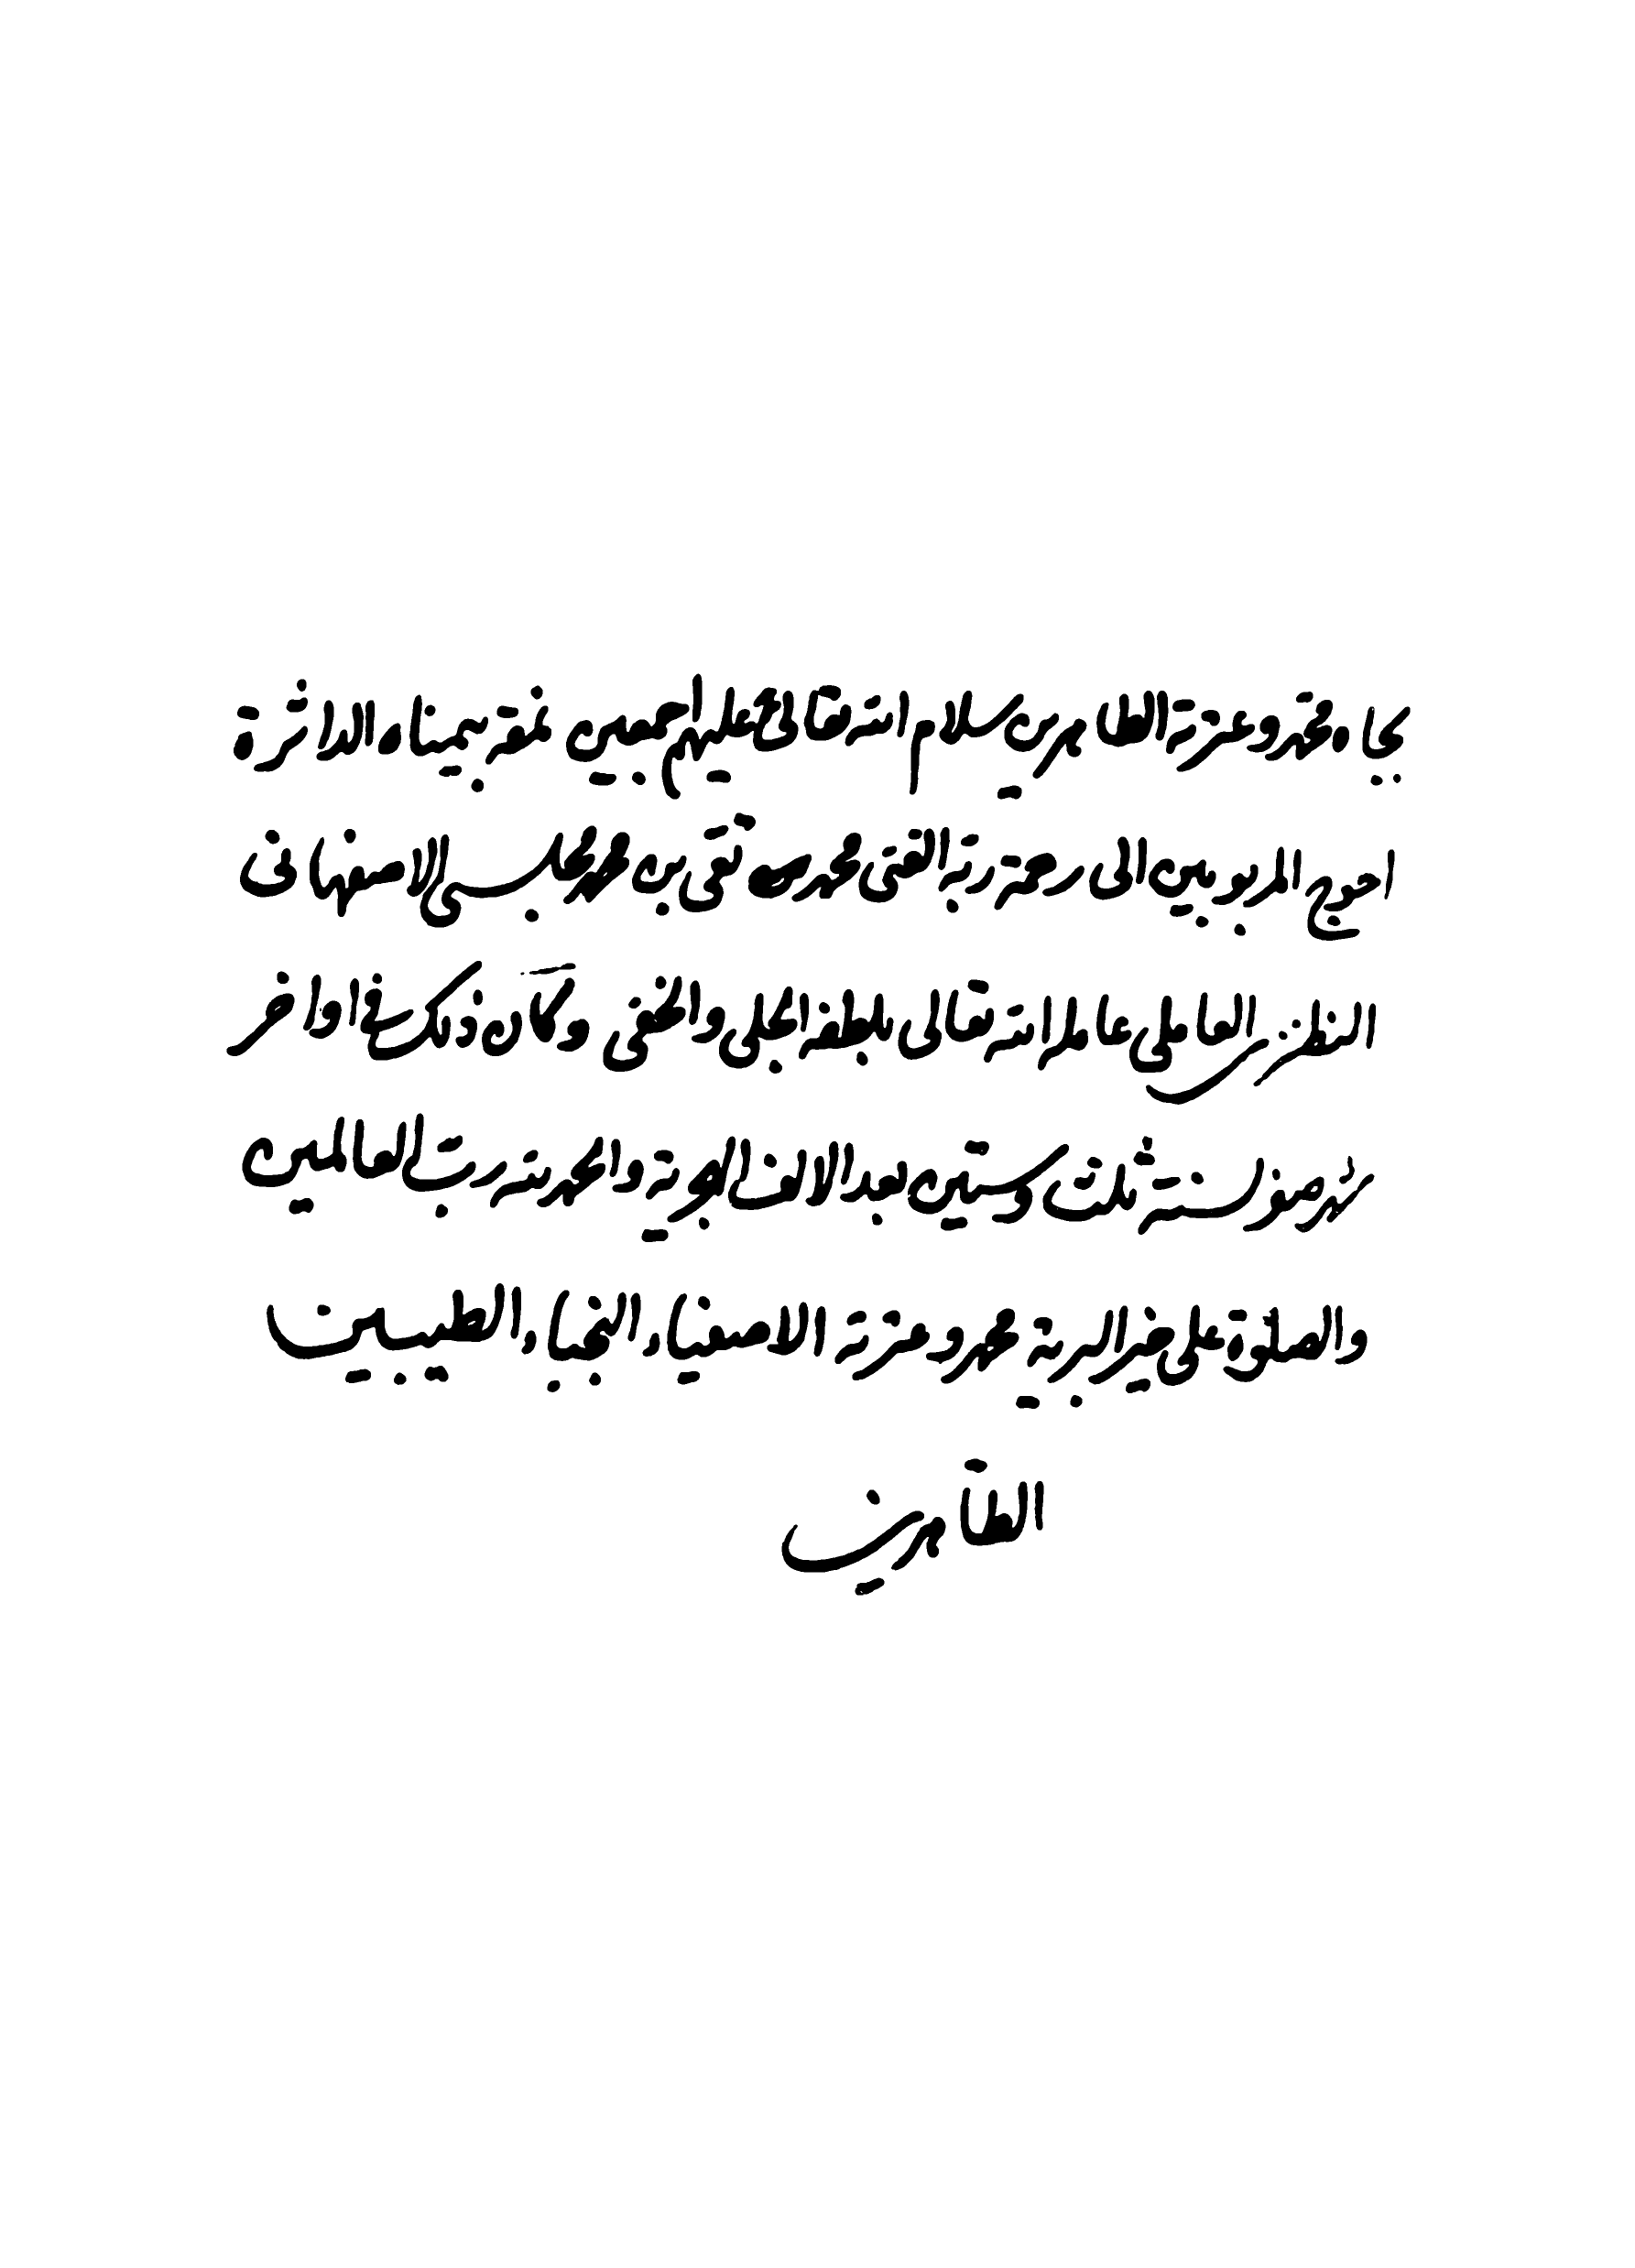 بجاه محمد وعترته الطاهرين سلام الله تعالى عليهم اجمعين نمقه بيمناه الداثرة
احوج المربوبين الى رحمة ربه الغنى محمد تقى بن مجلسى الاصفهانى
النطنزى العاملى عامله الله تعالى بلطفه الجلى والخفى وكان ذلك فى اواخر
شهر صفر لسنة ثلث وستين بعد الالف الهجرية والحمد لله رب العالمين
والصلوة على خير البرية محمد وعترته الاصفياء النجباء الطيبين
الطاهرين